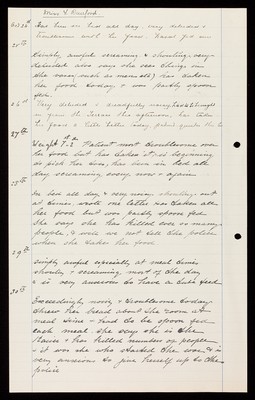 Miss V
Oct 24th Has been in bed all day very deluded &
troublesome with her food. Nasal
25th
Simply awful screaming & shouting very
deluded also says she sees things in
the room, such as men etc; has taken
her food today & was partly spoon
fed.
26th Very deluded & dreadfully noisy, had to be brought
in from the this afternoon, has taken
her food a little better today
27th
Weight 7st Patient most troublesome over
her food but has taken it at beginning
to pick her skin, has been in bed all
day screaming every now & again
28th
In bed all day & very noisy shouting out
at times, wrote one letter has taken all
her food but was partly spoon fed.
She says she has killed ever so many
people, & will we not tell the police
when she takes her food
29th
Simply awful especially at meal times
shouting & screaming most of the day
& is very anxious to have a tube feed
30th
Exceedingly noisy & troublesome today
threw her bread about the room at
meal time had to be spoon fed
each meal she says she is the
& has killed number of people
& it was she who started the war & is
very anxious to give herself up to the
police